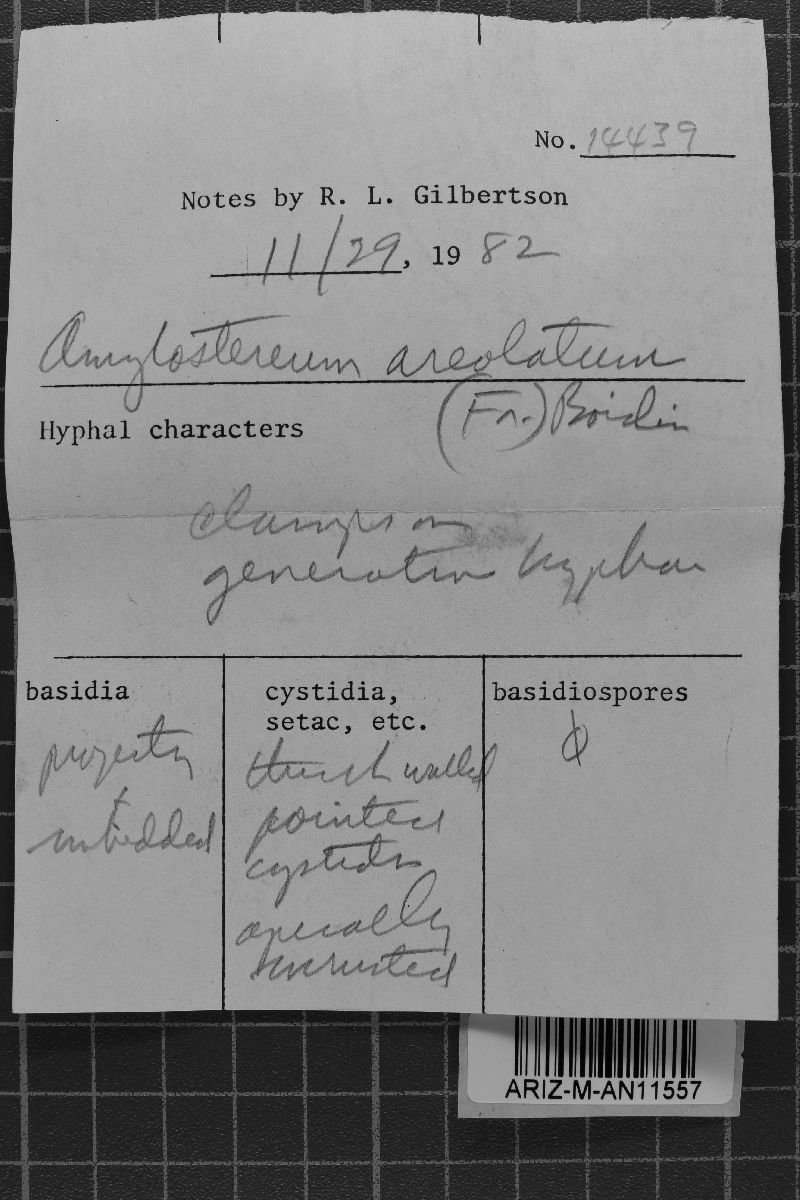 No. 14439
Notes by R. L. Gilbertson
11/29, 19 82
Amylostereum areolatum
(Fr.) Boidin
Hyphal characters
clamps on
generative hyphae
basidia
projecting
+
imbedded
cystidia,
setac, etc.
thick walled
pointed
cystidia
apically
incrusted
basidiospores
ϕ
ARIZ-M-AN11557